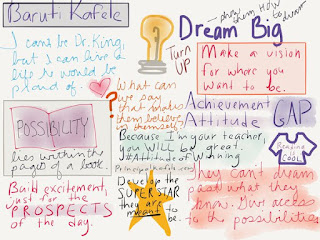 Baruti Kafele
I can't be Dr. King,
but I can live a
life he would be
proud of.
POSSIBILITY
lies within the
pages of a book.
Build excitement
just for the
PROSPECTS
of the day.
?
Dream Big
program HOW to dream
Turn
UP
Make a vision
for where you
want to be.
What can
we say
that makes
them believe
in themself?
Achievement
Attitude
GAP
Because I'm your teacher,
you WILL be great.
#Attitude of Winning
Principal Kafele says
Develop the
SUPERSTAR
they are
meant to
be.
Reading
is
COOL
They can't dream
past what they
know. Give access
to the possibilities